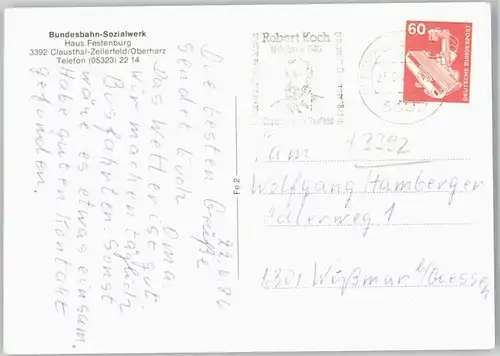 Bundesbahn-Sozialwerk
Haus Festenburg
3392 Clausthal-Zellerfeld/Oberharz
Telefon (05323) 22 14
22.6.86
Die besten Grüße
sendet Euch Oma
Das Wetter ist gut.
Wir machen täglich
Busfahrten. Sonst
wäre es etwas einsam.
Habe guten Kontakt
gefunden.
Fe 2
Robert Koch
60
DEUTSCHE BUNDESPOST
3392
Fam
Wolfgang Hamberger
Adlerweg 1
6301 Wißmar b/Giessen